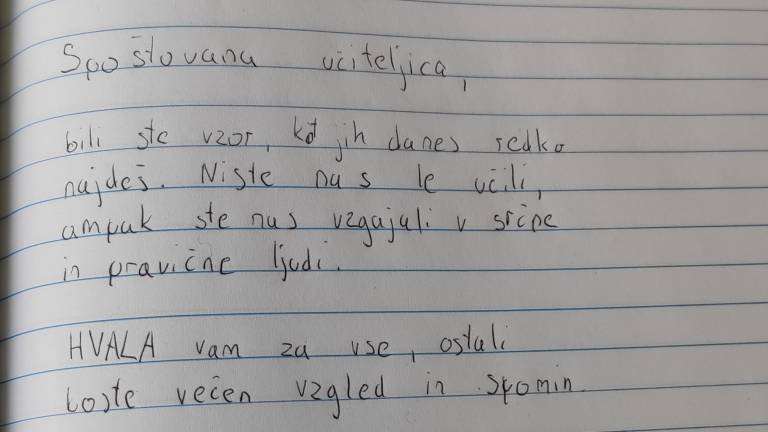 Spoštovana učiteljica,
bili ste vzor, kot jih danes redko
najdeš. Niste nas le učili,
ampak ste nas vzgajali v srčne
in pravične ljudi.
HVALA vam za vse, ostali
boste večen vzgled in spomin.